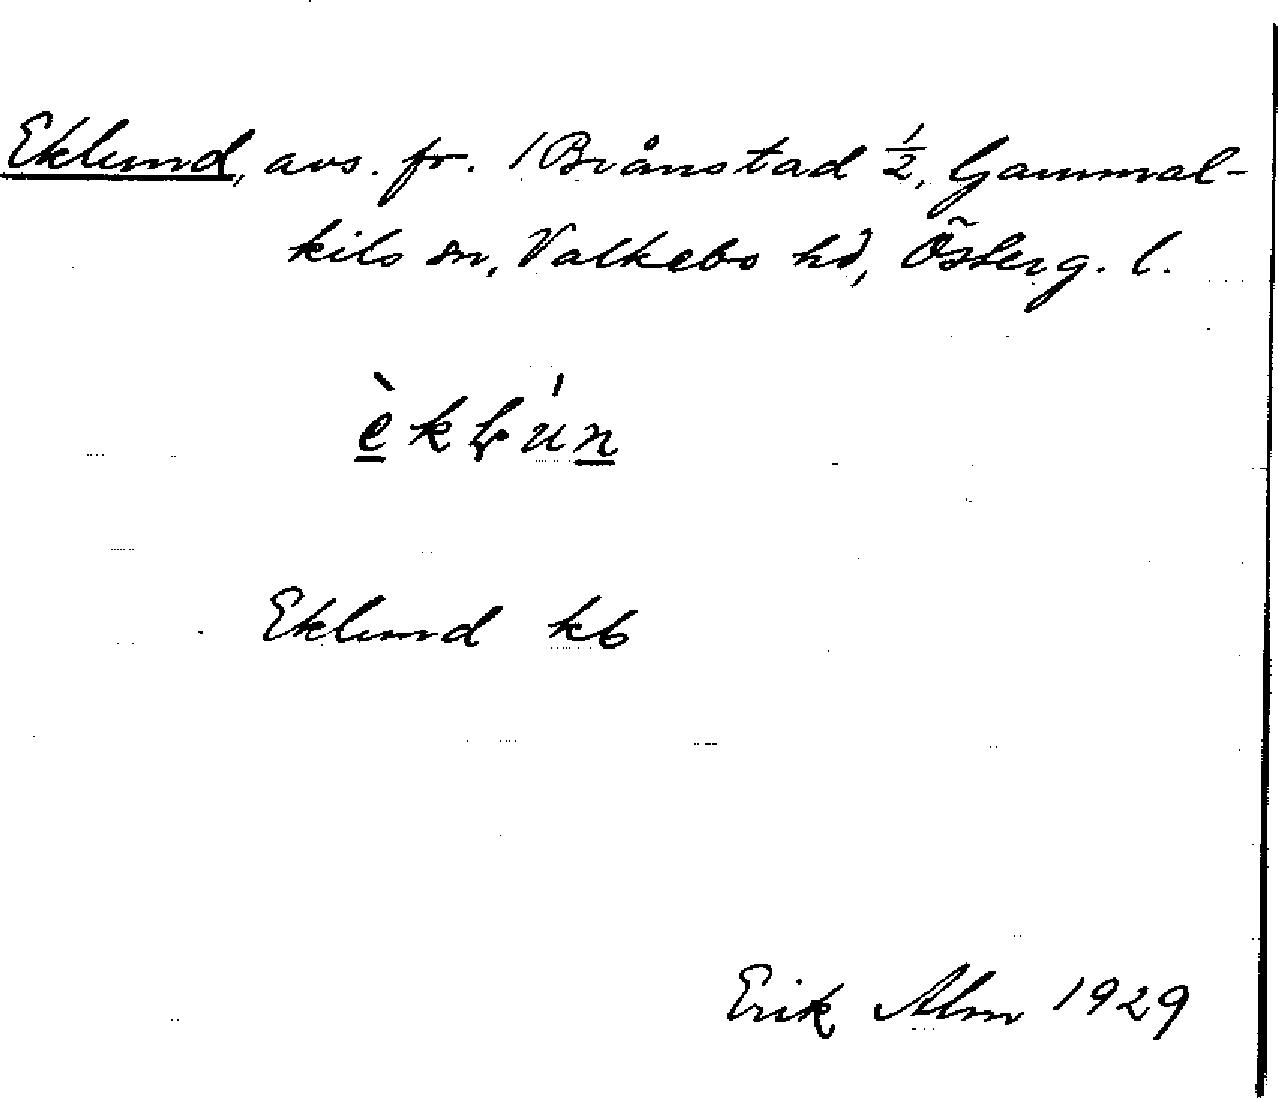 Eklund, avs. fr. 1 Brånstad ½, Gammal-
kils sn, Valkebo hd, Österg. l.
Eklund kb
Erik Alm 1929